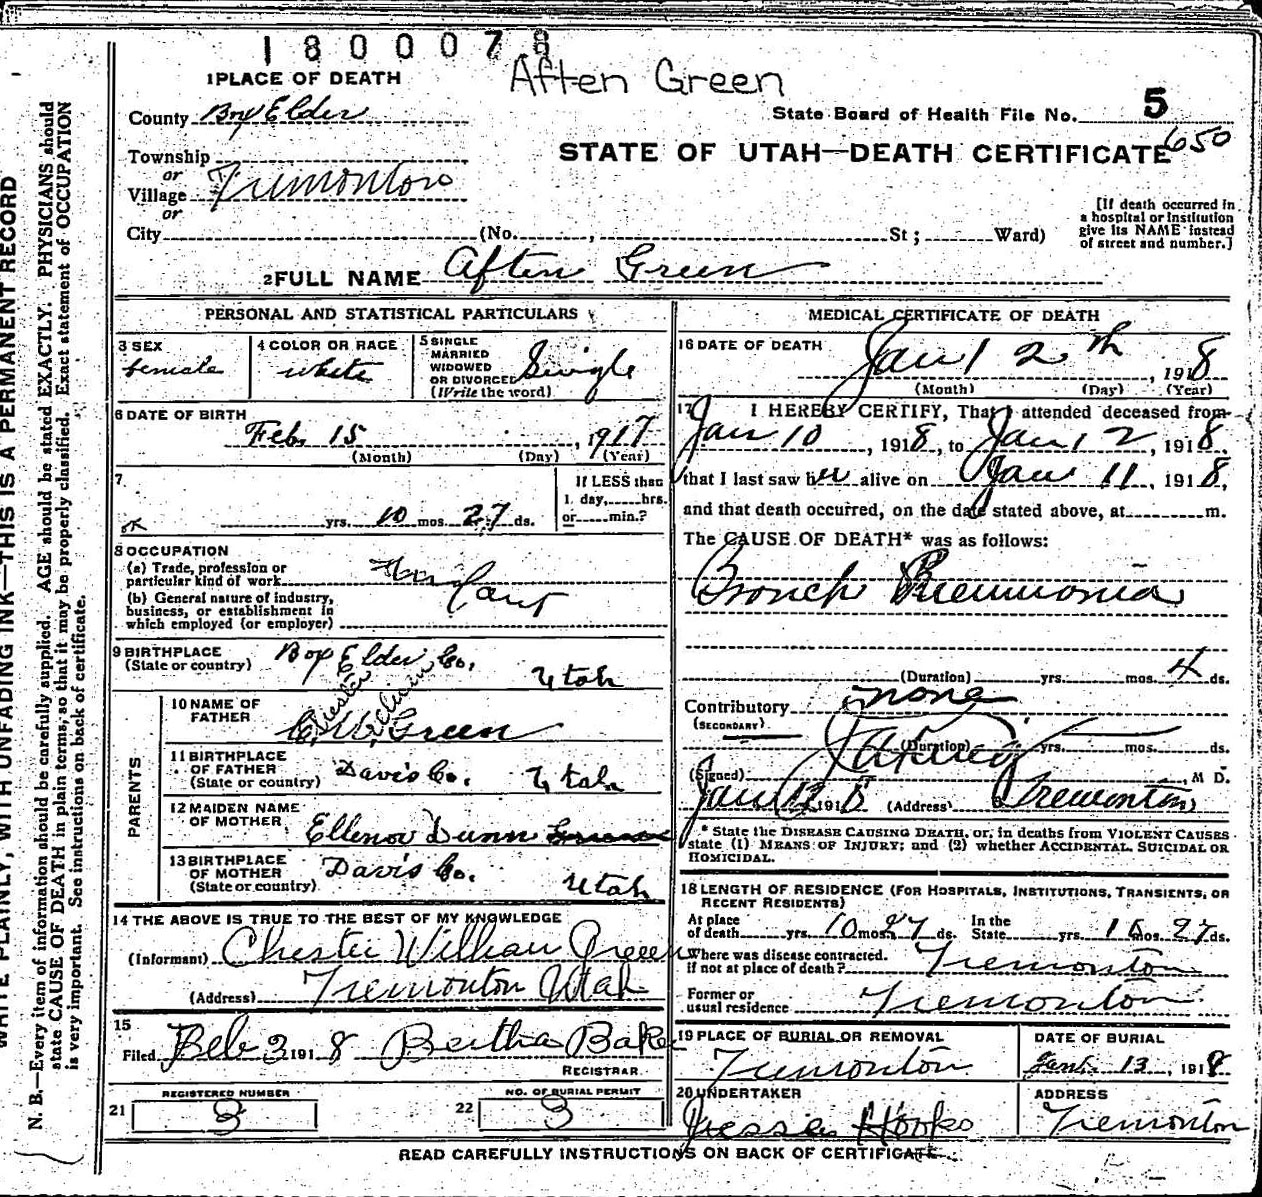 1800078
Aften Green
1 PLACE OF DEATH
County Box Elder
State Board of Health File No. 5
650
STATE OF UTAH—DEATH CERTIFICATE
Township
or
Village Tremonton
or
City (No. , St ; Ward)
[If death occurred in a hospital or institution give its NAME instead of street and number.]
2 FULL NAME Aften Green
PERSONAL AND STATISTICAL PARTICULARS
3 SEX female
4 COLOR OR RACE white
5 SINGLE MARRIED WIDOWED OR DIVORCED (Write the word) Single
6 DATE OF BIRTH
Feb 15, 1917
(Month) (Day) (Year)
7
yrs. 10 mos. 27 ds.
If LESS than 1 day, hrs. or min.?
8 OCCUPATION
(a) Trade, profession or particular kind of work
(b) General nature of industry, business, or establishment in which employed (or employer)
Infant
9 BIRTHPLACE (State or country) Box Elder Co. Utah
PARENTS
10 NAME OF FATHER C. W. Green
Chester
11 BIRTHPLACE OF FATHER (State or country) Davis Co. Utah
12 MAIDEN NAME OF MOTHER Ellenor Dunn
13 BIRTHPLACE OF MOTHER (State or country) Davis Co. Utah
14 THE ABOVE IS TRUE TO THE BEST OF MY KNOWLEDGE
(Informant) Chester William Green
(Address) Tremonton Utah
15
Filed Feb 3 1918 Bertha Baker
REGISTRAR
21 REGISTERED NUMBER 3
22 NO. OF BURIAL PERMIT 3
MEDICAL CERTIFICATE OF DEATH
16 DATE OF DEATH
Jan 12th, 1918
(Month) (Day) (Year)
17 I HEREBY CERTIFY, That I attended deceased from
Jan 10, 1918, to Jan 12, 1918.
that I last saw her alive on Jan 11, 1918,
and that death occurred, on the date stated above, at m.
The CAUSE OF DEATH* was as follows:
Bronch Pneumonia
(Duration) yrs. mos. 4 ds.
Contributory none
(SECONDARY)
(Duration) yrs. mos. ds.
(Signed) , M D.
Jan 12 1918 (Address) Tremonton
* State the DISEASE CAUSING DEATH, or, in deaths from VIOLENT CAUSES
state (1) MEANS OF INJURY; and (2) whether ACCIDENTAL, SUICIDAL OR
HOMICIDAL.
18 LENGTH OF RESIDENCE (FOR HOSPITALS, INSTITUTIONS, TRANSIENTS, OR
RECENT RESIDENTS)
At place of death yrs. 10 mos. 27 ds. In the State yrs. 10 mos. 27 ds.
Where was disease contracted, if not at place of death? Tremonton
Former or usual residence Tremonton
19 PLACE OF BURIAL OR REMOVAL
Tremonton
DATE OF BURIAL
Jan. 13, 1918
20 UNDERTAKER
Jesse Hooks
ADDRESS
Tremonton
READ CAREFULLY INSTRUCTIONS ON BACK OF CERTIFICATE.
WRITE PLAINLY, WITH UNFADING INK—THIS IS A PERMANENT RECORD
N. B.—Every item of information should be carefully supplied. AGE should be stated EXACTLY. PHYSICIANS should
state CAUSE OF DEATH in plain terms, so that it may be properly classified. Exact statement of OCCUPATION
is very important. See instructions on back of certificate.